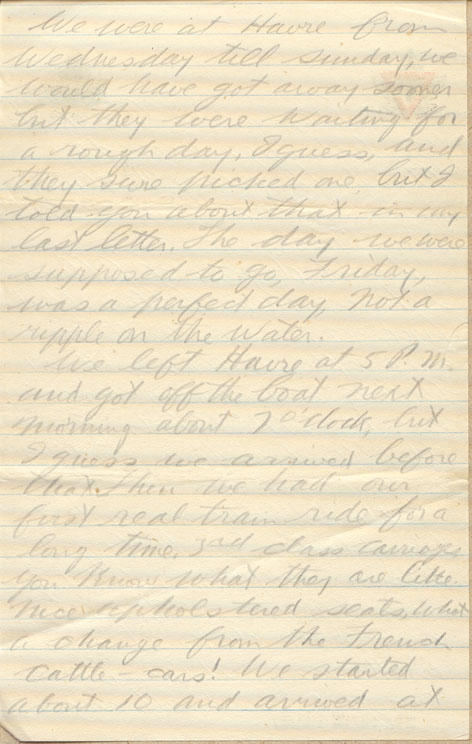 We were at Havre from
Wednesday till Sunday, we
would have got away sooner
but they were waiting for
a rough day, I guess, and
they sure picked one, but I
told you about that in my
last letter. The day we were
supposed to go, Friday,
was a perfect day, not a
ripple on the water.
We left Havre at 5 P.M.
and got off the boat next
morning about 7 o'clock, but
I guess we arrived before
that. Then we had our
first real train ride for a
long time, 3rd class carriages
you know what they are like.
nice upholstered seats, what
a change from the French
cattle-cars! We started
about 10 and arrived at